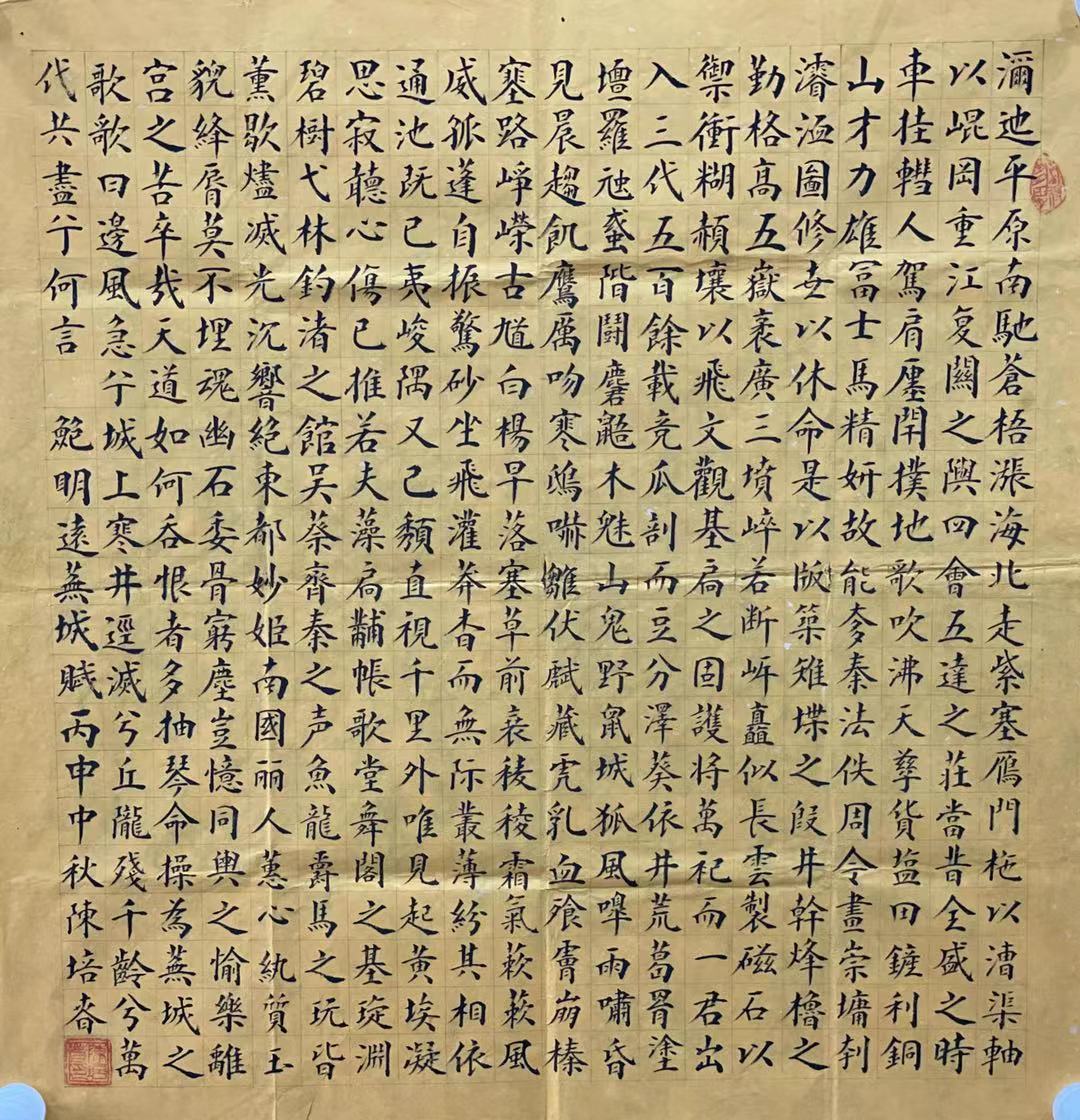 瀰迆平原南馳蒼梧漲海北走紫塞鴈門柂以漕渠軸
以崐岡重江复關之隩四會五達之莊當昔全盛之時
車挂轊人駕肩廛閈撲地歌吹沸天孳貨塩田鏟利銅
山才力雄富士馬精妍故能奓秦法佚周令畫崇墉刳
濬洫圖修世以休命是以版築雉堞之殷井幹烽櫓之
勤格高五嶽袤廣三墳崪若断岸矗似長雲製磁石以
禦衝糊赬壤以飛文觀基扃之固護將萬祀而一君出
入三代五百餘載竞瓜剖而豆分澤葵依井荒葛罥塗
壇羅虺蜮階鬪麏鼯木魅山鬼野鼠城狐風嗥雨嘯昏
見晨趨飢鷹厲吻寒鴟嚇雛伏虣藏虎乳血飱膚崩榛
塞路崢嶸古馗白楊早落塞草前衰稜稜霜氣蔌蔌風
威孤蓬自振驚砂坐飛灌莽杳而無际叢薄紛其相依
通池既已夷峻隅又已頽直視千里外唯見起黄埃凝
思寂聼心傷已摧若夫藻扃黼帳歌堂舞閣之基琁淵
碧樹弋林釣渚之館吴蔡齊秦之声魚龍爵馬之玩皆
薫歇燼滅光沉響絕東都妙姬南國丽人蕙心紈質玉
貌絳脣莫不埋魂幽石委骨窮塵豈憶同輿之愉樂離
宫之苦卒㦲天道如何吞恨者多抽琴命操為蕪城之
歌歌曰邊風急兮城上寒井逕滅兮丘隴殘千齡兮萬
代共盡兮何言 鮑明遠蕪城賦丙申中秋陳培春